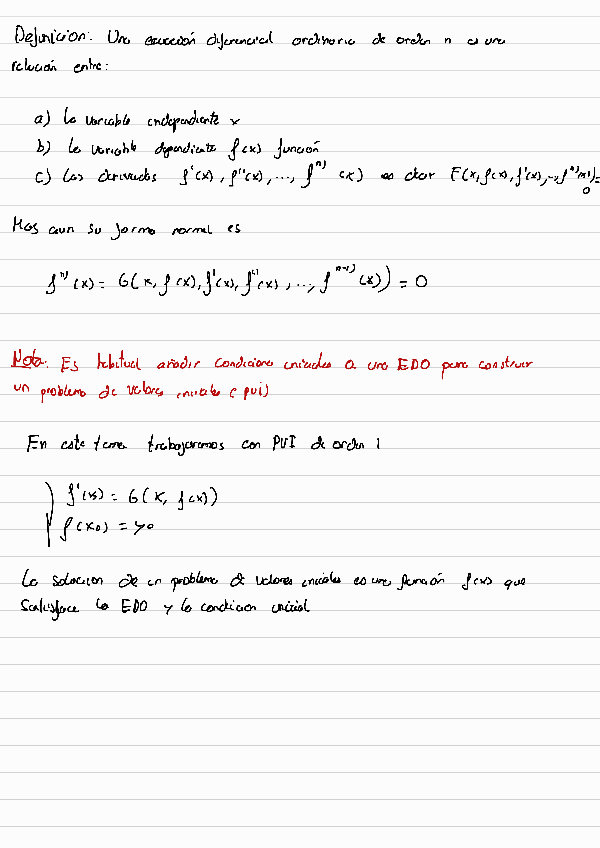 Definicion: Una ecuación diferencial ordinaria de orden n es una
relación entre:
a) la variable independiente x
b) la variable dependiente f(x) función
c) las derivadas f'(x), f''(x), ..., f^{n)}(x) es decir F(x, f(x), f'(x), ..., f^{n)}(x)) = 0
Mas aun su forma normal es
f^{n)}(x) = G(x, f(x), f'(x), f''(x), ..., f^{n-1)}(x)) = 0
Nota: Es habitual añadir condiciones iniciales a una EDO para construir
un problema de valores iniciales (pvi)
En este tema trabajaremos con PVI de orden 1
f'(x) = G(x, f(x))
f(x0) = y0
La solucion de un problema de valores iniciales es una función f(x) que
satisface la EDO y la condicion inicial